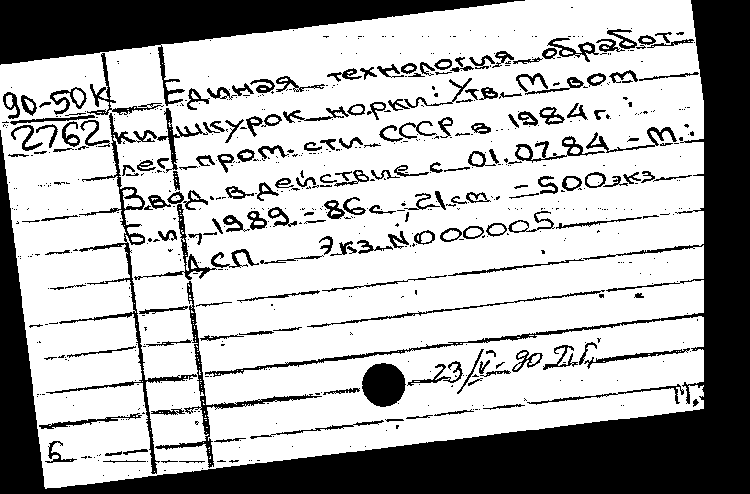 90-50К
2762
Единая технология обработ-
ки шкурок норки: Утв. М-вом
лег. пром-сти СССР в 1984 г. :
Ввод. в действие с 01.07.84 - М.:
Б.и., 1989. - 86 с.; 21 см. - 500 экз.
ДСП. Экз. N 000005.
23/IV-90
М.